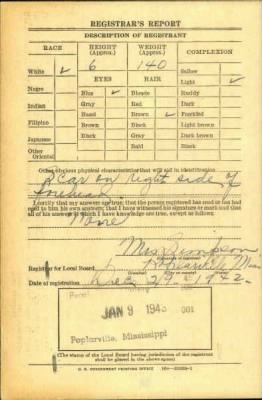 REGISTRAR'S REPORT
DESCRIPTION OF REGISTRANT
RACE
HEIGHT (Approx.)
WEIGHT (Approx.)
COMPLEXION
White ✓
6
140
Sallow
Light ✓
EYES
HAIR
Negro
Blue ✓
Blonde
Ruddy
Gray
Red
Dark
Indian
Hazel
Brown ✓
Freckled
Filipino
Brown
Black
Light brown
Japanese
Black
Gray
Dark brown
Other Oriental
Bald
Black
Other obvious physical characteristics that will aid in identification
Scar on right side of
forehead
I certify that my answers are true; that the person registered has read or has
had read to him his own answers; that I have witnessed his signature or mark and that
all of his answers of which I have knowledge are true, except as follows:
None
Simpson
Registrar for Local Board
Miss
Date of registration Dec 29 - 1942
JAN 9 1943 001
Poplarville, Mississippi
(The stamp of the Local Board having jurisdiction of the registrant
shall be placed in the above space)
U. S. GOVERNMENT PRINTING OFFICE